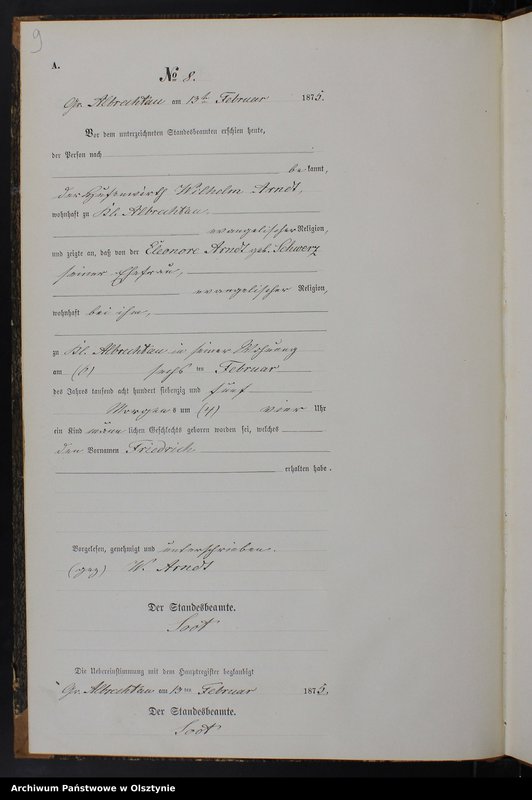 9
A.
No 8.
Gr. Albrechtau am 13ten Februar 1875.
Vor dem unterzeichneten Standesbeamten erschien heute,
der Person nach
be kannt,
der Hufenwirth Wilhelm Arndt,
wohnhaft zu Kl. Albrechtau,
evangelischer Religion,
und zeigte an, daß von der Eleonore Arndt geb. Schwerz
seiner Ehefrau,
evangelischer Religion,
wohnhaft bei ihm,
zu Kl. Albrechtau in seiner Wohnung
am (6) sechs ten Februar
des Jahres tausend acht hundert siebenzig und fünf
Morgens um (4) vier Uhr
ein Kind männlichen Geschlechts geboren worden sei, welches
den Vornamen Friedrich
erhalten habe.
Vorgelesen, genehmigt und unterschrieben.
(gez) W. Arndt
Der Standesbeamte.
Die Uebereinstimmung mit dem Hauptregister beglaubigt
Gr. Albrechtau am 13ten Februar 1875.
Der Standesbeamte.
Archiwum Państwowe w Olsztynie